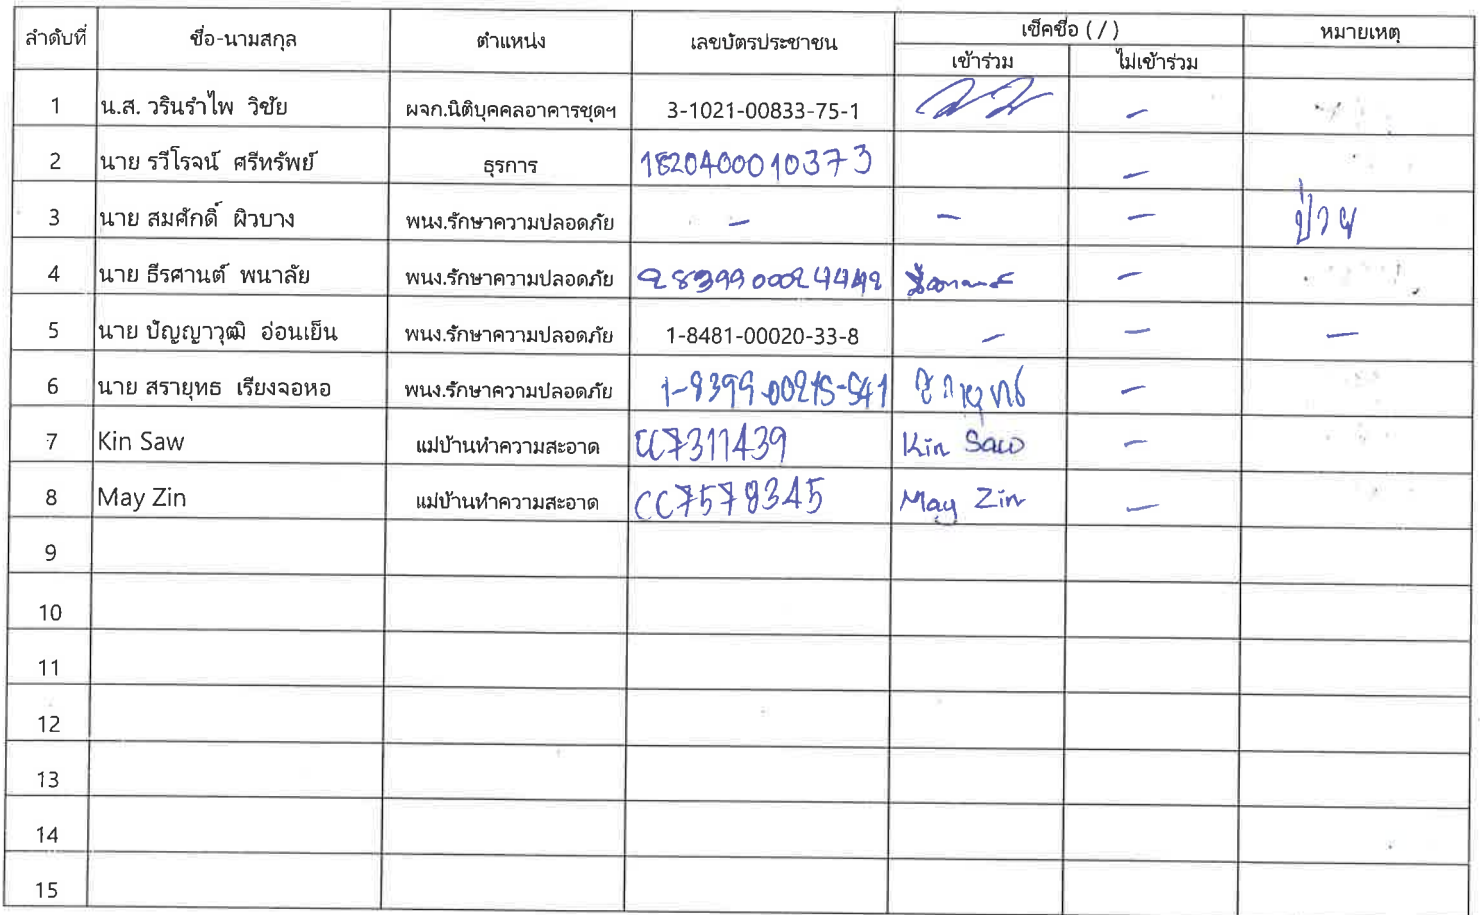 ลำดับที่ ชื่อ-นามสกุล ตำแหน่ง เลขบัตรประชาชน เช็คชื่อ ( / ) หมายเหตุ
เข้าร่วม ไม่เข้าร่วม
1 น.ส. วรินรำไพ วิชัย ผจก.นิติบุคคลอาคารชุดฯ 3-1021-00833-75-1 -
2 นาย รวีโรจน์ ศรีทรัพย์ ธุรการ 1820400010373 -
3 นาย สมศักดิ์ ผิวบาง พนง.รักษาความปลอดภัย - - - ป่วย
4 นาย ธีรศานต์ พนาลัย พนง.รักษาความปลอดภัย -
5 นาย ปัญญาวุฒิ อ่อนเย็น พนง.รักษาความปลอดภัย 1-8481-00020-33-8 - - -
6 นาย สรายุทธ เรียงจอหอ พนง.รักษาความปลอดภัย 1-8399-00215-541 -
7 Kin Saw แม่บ้านทำความสะอาด CC7311439 Kin Saw -
8 May Zin แม่บ้านทำความสะอาด CC7578345 May Zin -
9
10
11
12
13
14
15